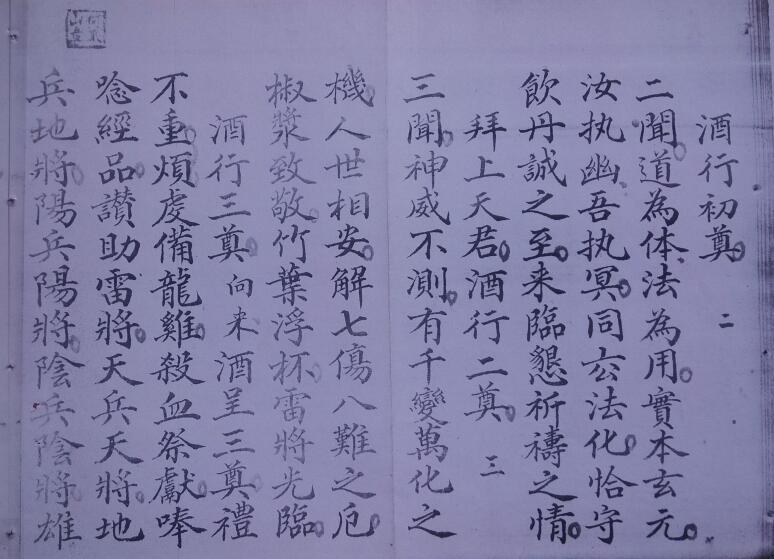 酒行初奠。二
二聞。道為体。法為用。實本玄元。
汝执幽。吾执冥。同玄法化。恰守
飲丹誠之至。来臨懇祈禱之情。
拜上天君。酒行二奠。三
三聞。神威不測。有千變萬化之
機。人世相安。解七傷八難之厄。
椒漿致敬。竹葉浮杯。雷將光臨。
酒行三奠。向来酒呈三奠。禮
不重煩。虔備龍雞。殺血祭獻。唪
唸經品。讃助雷將。天兵天將。地
兵地將。陽兵陽將。陰兵陰將。雄